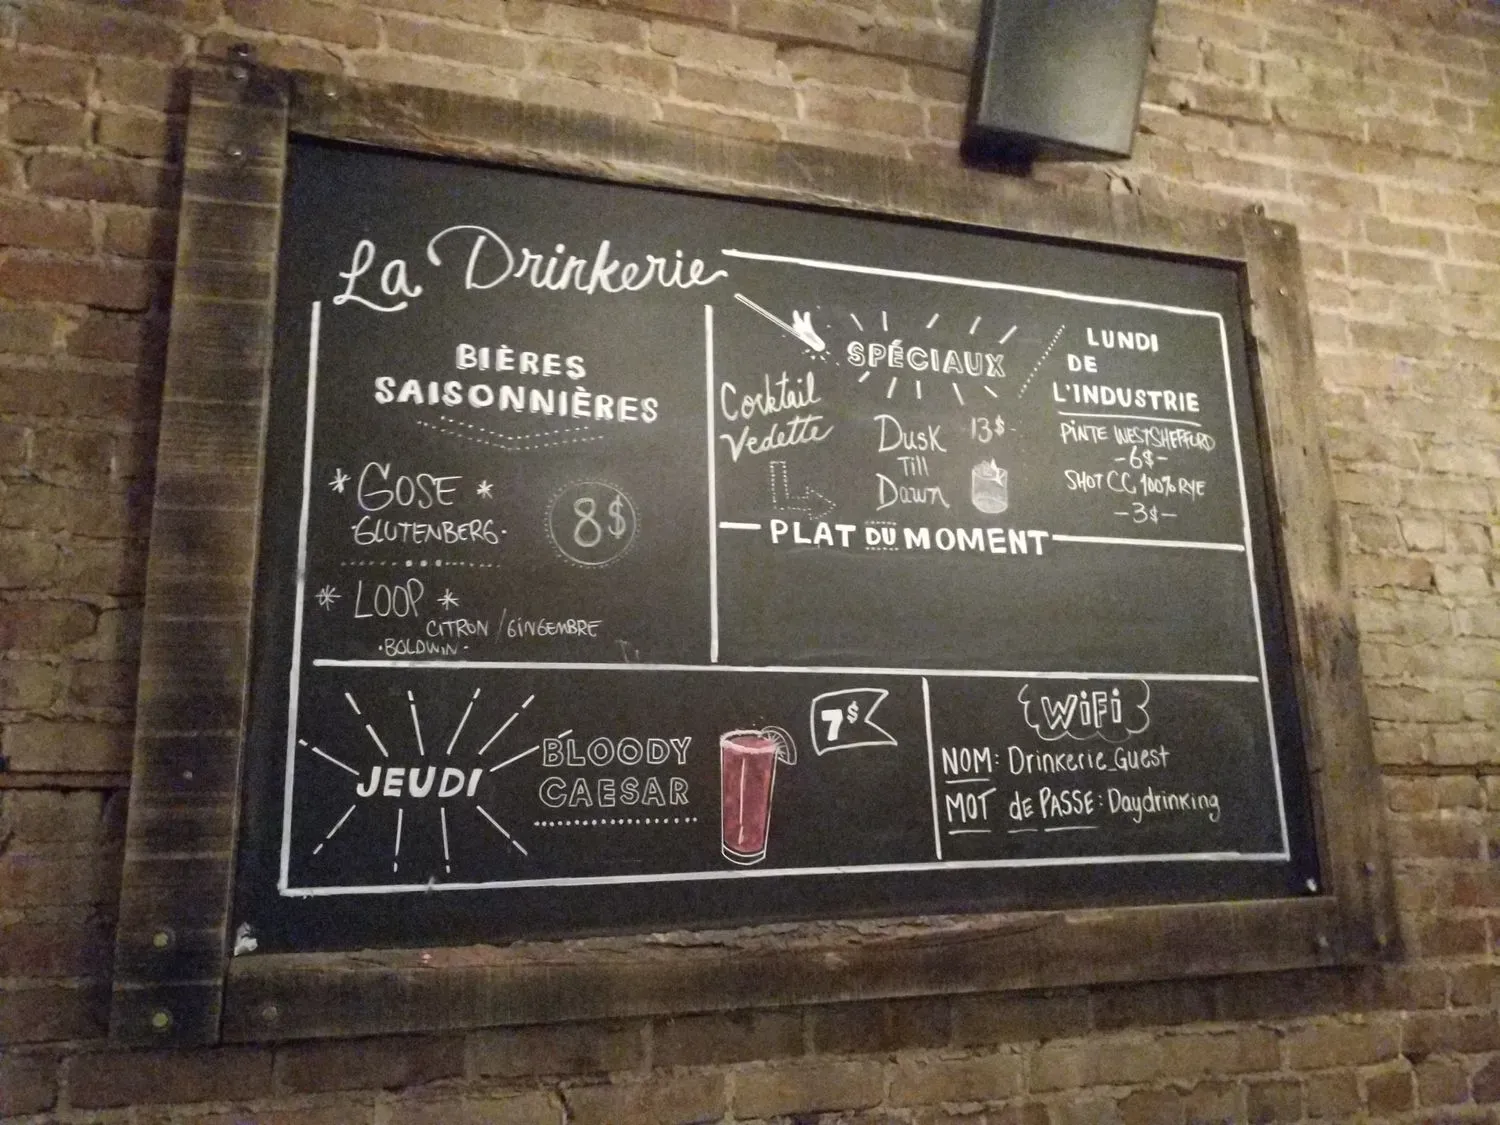 La Drinkerie
BIÈRES
SAISONNIÈRES
* GOSE *
·GLUTENBERG·
8$
* LOOP *
CITRON / GINGEMBRE
·BOLDWIN·
SPÉCIAUX
Cocktail
Vedette
Dusk
Till
Dawn
13$
LUNDI
DE
L'INDUSTRIE
PINTE WESTSHEFFORD
-6$-
SHOT CC 100% RYE
-3$-
PLAT DU MOMENT
JEUDI
BLOODY
CAESAR
7$
WiFi
NOM: Drinkerie_Guest
MOT de PASSE: Daydrinking